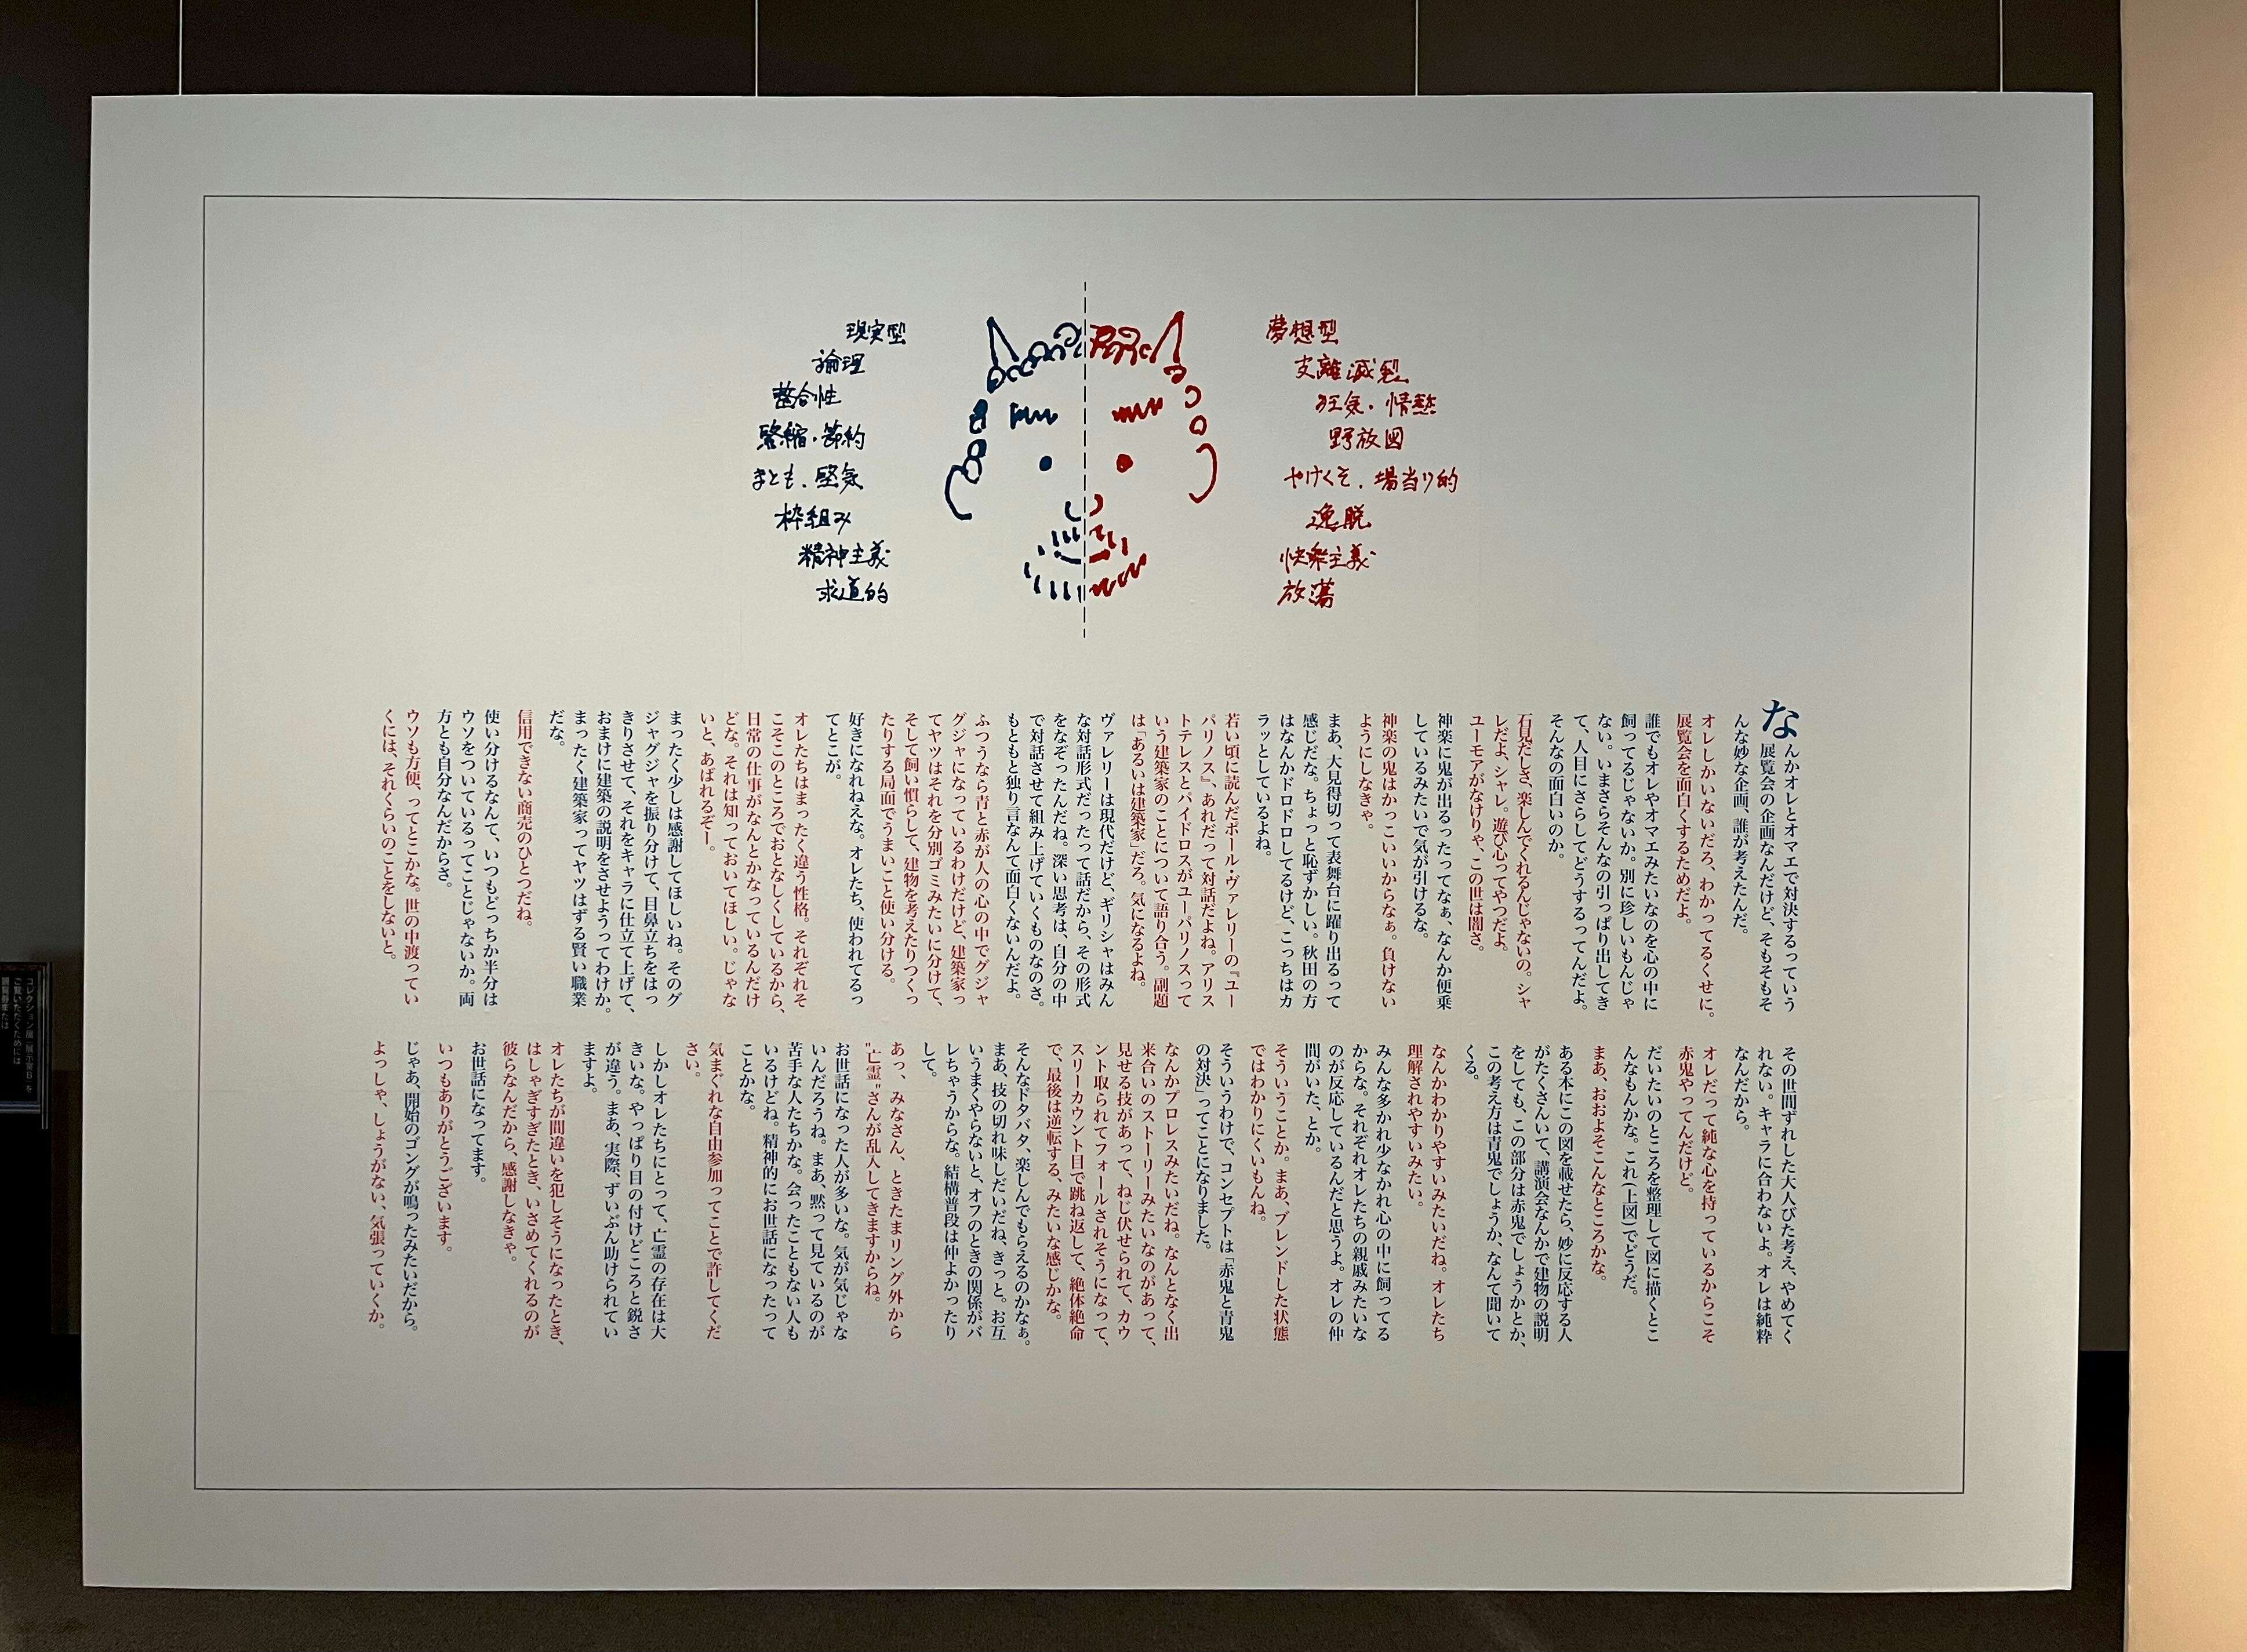 現実型
論理
整合性
緊縮・節約
まとも．堅気
枠組み
精神主義
求道的
夢想型
支離滅裂
狂気・情熱
野放図
やけくそ．場当り的
逸脱
快楽主義
放蕩
なんかオレとオマエで対決するっていう
展覧会の企画なんだけど、そもそもそ
んな妙な企画、誰が考えたんだ。
オレしかいないだろ、わかってるくせに。
展覧会を面白くするためだよ。
誰でもオレやオマエみたいなのを心の中に
飼ってるじゃないか。別に珍しいもんじゃ
ない。いまさらそんなの引っぱり出してき
て、人目にさらしてどうするってんだよ。
そんなの面白いのか。
石見だしさ、楽しんでくれるんじゃないの。シャ
レだよ、シャレ。遊び心ってやつだよ。
ユーモアがなけりゃ、この世は闇さ。
神楽に鬼が出るったってなぁ、なんか便乗
しているみたいで気が引けるな。
神楽の鬼はかっこいいからなぁ。負けない
ようにしなきゃ。
まあ、大見得切って表舞台に躍り出るって
感じだな。ちょっと恥ずかしい。秋田の方
はなんかドロドロしてるけど、こっちはカ
ラッとしているよね。
若い頃に読んだポール・ヴァレリーの『ユー
パリノス』、あれだって対話だよね。アリス
トテレスとパイドロスがユーパリノスって
いう建築家のことについて語り合う。副題
は「あるいは建築家」だろ。気になるよね。
ヴァレリーは現代だけど、ギリシャはみん
な対話形式だったって話だから、その形式
をなぞったんだね。深い思考は、自分の中
で対話させて組み上げていくものなのさ。
もともと独り言なんて面白くないんだよ。
ふつうなら青と赤が人の心の中でグジャ
グジャになっているわけだけど、建築家っ
てヤツはそれを分別ゴミみたいに分けて、
そして飼い慣らして、建物を考えたりつくっ
たりする局面でうまいこと使い分ける。
好きになれねえな。オレたち、使われてるっ
てとこが。
オレたちはまったく違う性格。それぞれそ
こそこのところでおとなしくしているから、
日常の仕事がなんとかなっているんだけ
どな。それは知っておいてほしい。じゃな
いと、あばれるぞー。
まったく少しは感謝してほしいね。そのグ
ジャグジャを振り分けて、目鼻立ちをはっ
きりさせて、それをキャラに仕立て上げて、
おまけに建築の説明をさせようってわけか。
まったく建築家ってヤツはずる賢い職業
だな。
信用できない商売のひとつだね。
使い分けるなんて、いつもどっちか半分は
ウソをついているってことじゃないか。両
方とも自分なんだからさ。
ウソも方便、ってとこかな。世の中渡ってい
くには、それくらいのことをしないと。
その世間ずれした大人びた考え、やめてく
れない。キャラに合わないよ。オレは純粋
なんだから。
オレだって純な心を持っているからこそ
赤鬼やってんだけど。
だいたいのところを整理して図に描くとこ
んなもんかな。これ(上図)でどうだ。
まあ、おおよそこんなところかな。
ある本にこの図を載せたら、妙に反応する人
がたくさんいて、講演会なんかで建物の説明
をしても、この部分は赤鬼でしょうかとか、
この考え方は青鬼でしょうか、なんて聞いて
くる。
なんかわかりやすいみたいだね。オレたち
理解されやすいみたい。
みんな多かれ少なかれ心の中に飼ってる
からな。それぞれオレたちの親戚みたいな
のが反応しているんだと思うよ。オレの仲
間がいた、とか。
そういうことか。まあ、ブレンドした状態
ではわかりにくいもんね。
そういうわけで、コンセプトは「赤鬼と青鬼
の対決」ってことになりました。
なんかプロレスみたいだね。なんとなく出
来合いのストーリーみたいなのがあって、
見せる技があって、ねじ伏せられて、カウ
ント取られてフォールされそうになって、
スリーカウント目で跳ね返して、絶体絶命
で、最後は逆転する、みたいな感じかな。
そんなドタバタ、楽しんでもらえるのかなぁ。
まあ、技の切れ味しだいだね、きっと。お互
いうまくやらないと、オフのときの関係がバ
レちゃうからな。結構普段は仲よかったり
して。
あっ、みなさん、ときたまリング外から
"亡霊"さんが乱入してきますからね。
お世話になった人が多いな。気が気じゃな
いんだろうね。まあ、黙って見ているのが
苦手な人たちかな。会ったこともない人も
いるけどね。精神的にお世話になったって
ことかな。
気まぐれな自由参加ってことで許してくだ
さい。
しかしオレたちにとって、亡霊の存在は大
きいな。やっぱり目の付けどころと鋭さ
が違う。まあ、実際、ずいぶん助けられてい
ますよ。
オレたちが間違いを犯しそうになったとき、
はしゃぎすぎたとき、いさめてくれるのが
彼らなんだから、感謝しなきゃ。
お世話になってます。
いつもありがとうございます。
じゃあ、開始のゴングが鳴ったみたいだから。
よっしゃ、しょうがない、気張っていくか。
コレクション展 展示室Bを
ご覧いただくためには
観覧券または